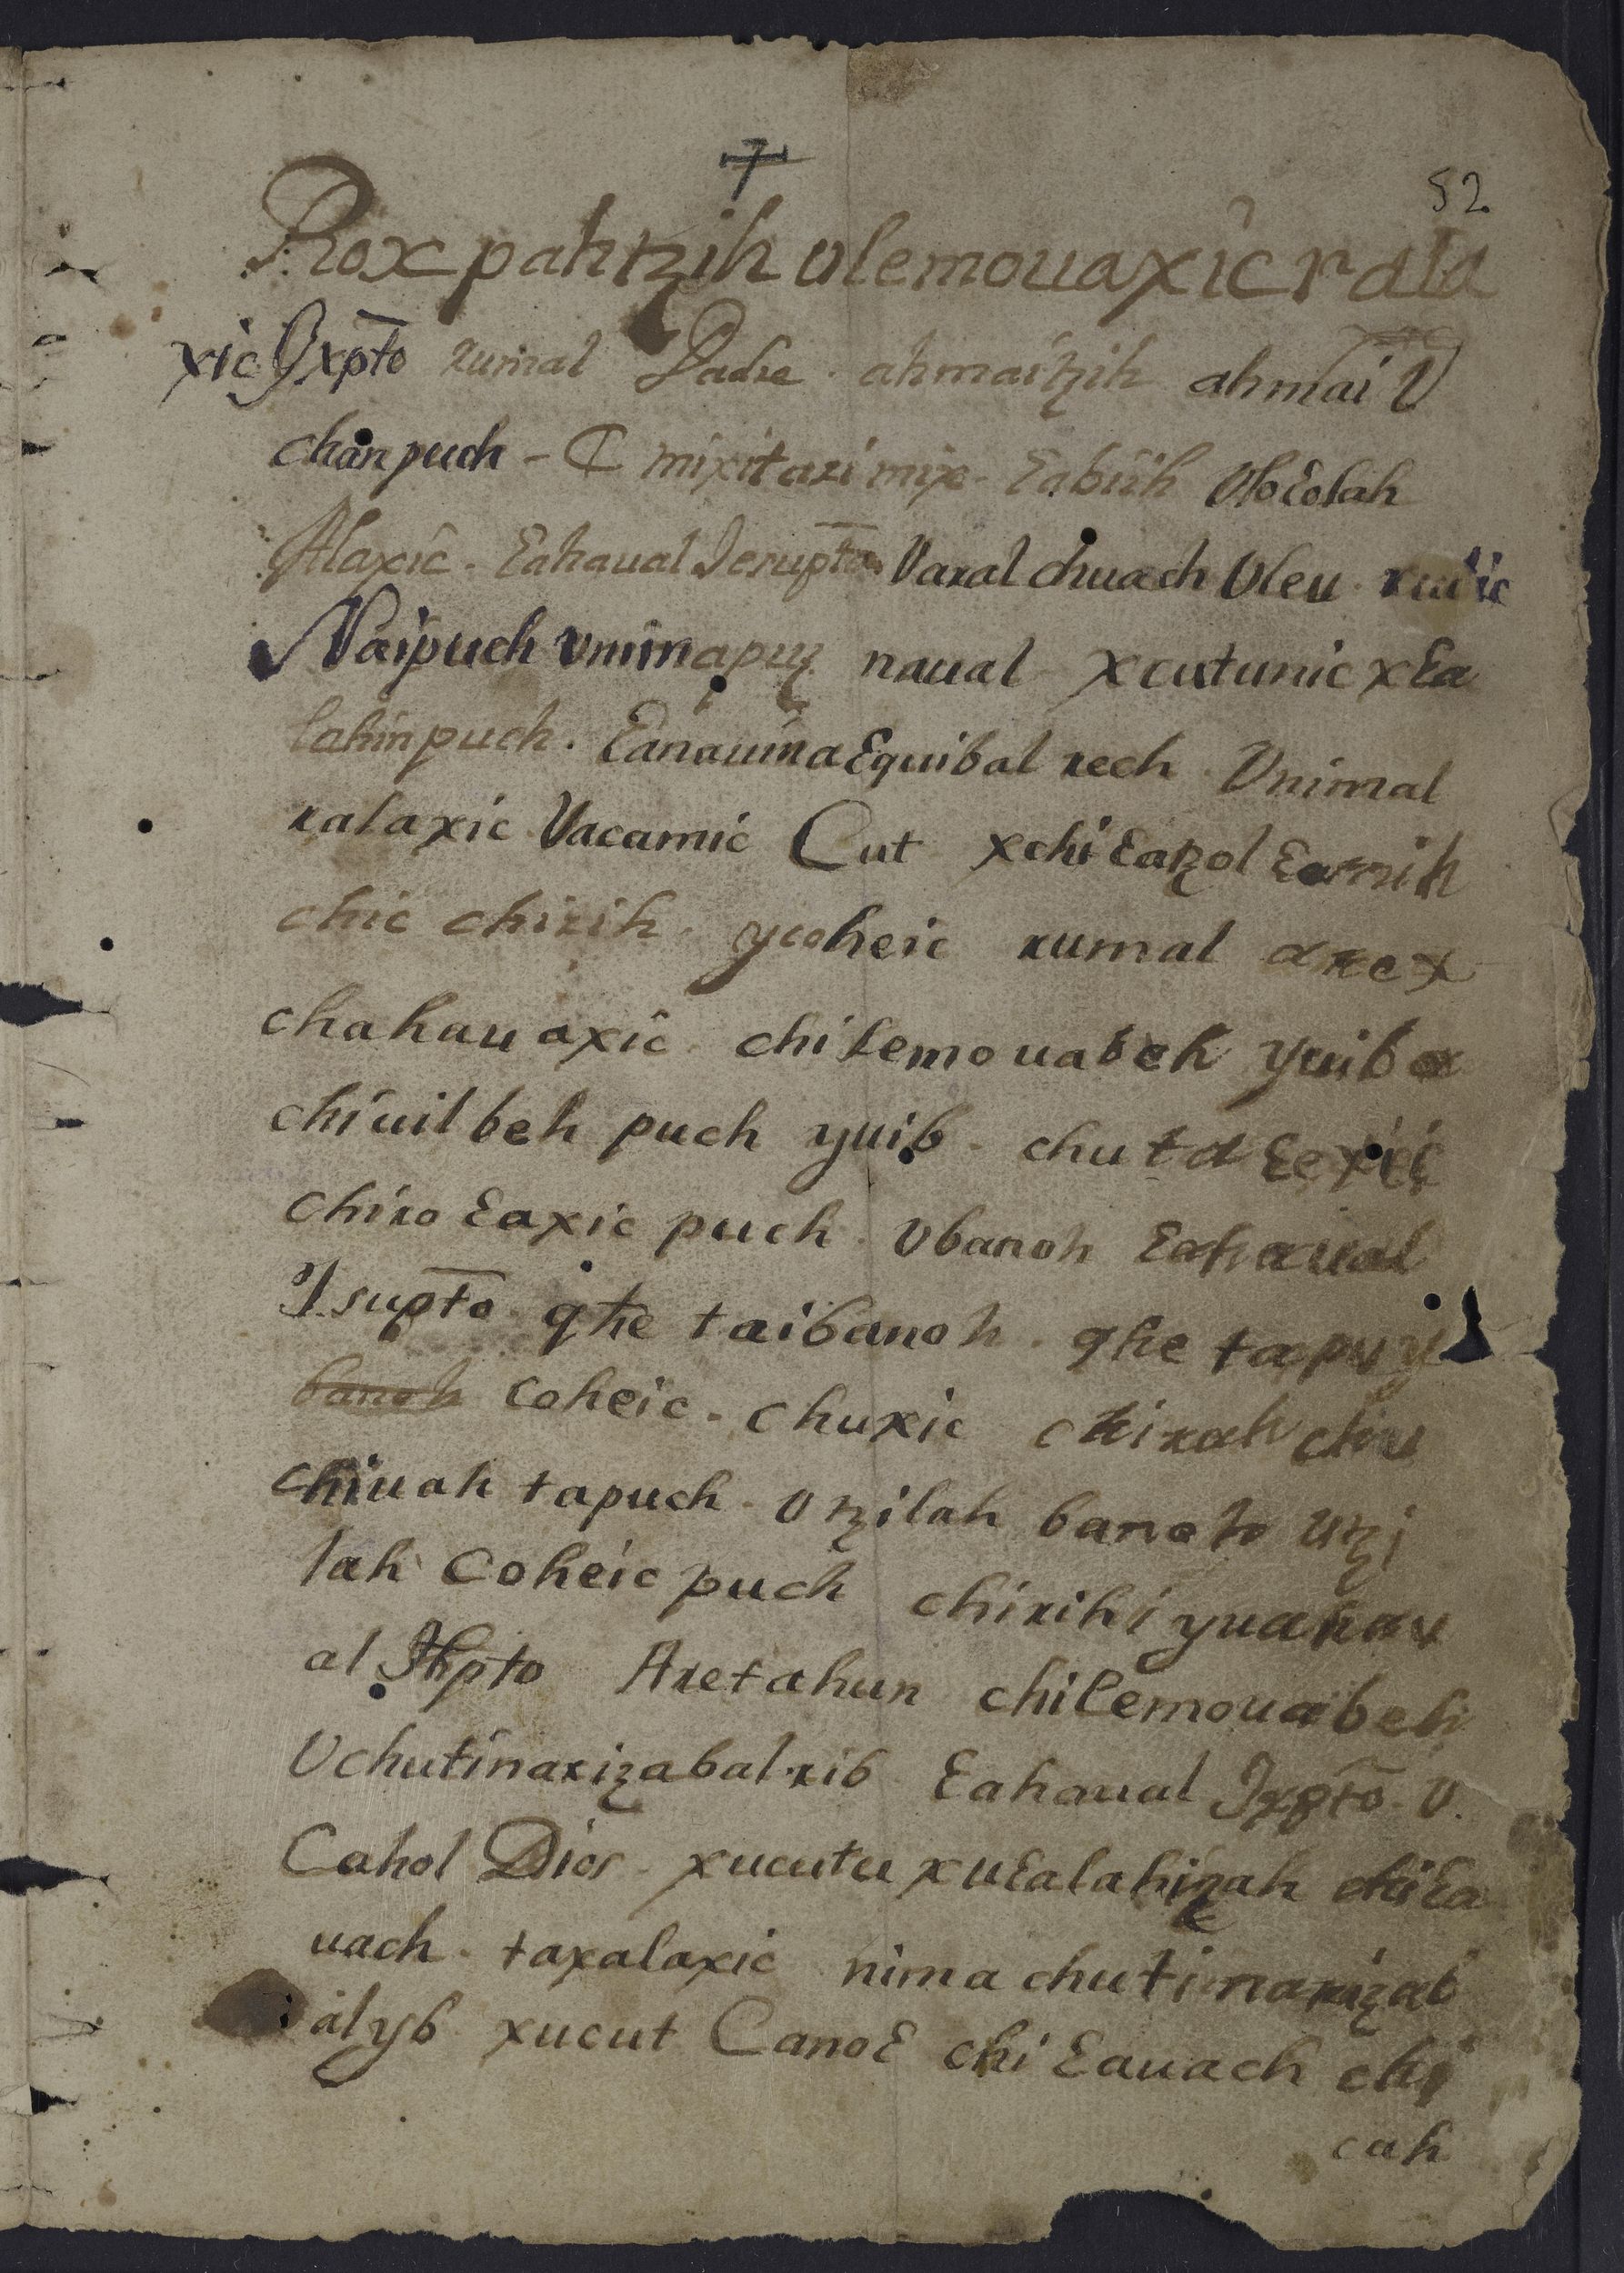 52
Rox pahtzih ulemouaxic rala
xic Jxpto rumal Padre ahmaitzih ahmai V
chan puch - C mixitari mix Ɛabiih VloƐolah
Alaxic. Ɛahaual Jesupto Varal chuach Uleu
Naipuch vnimapuz naual xcutunic xƐa
lahin puch. Ɛanauina Ɛquibal rech Vnimal
ralaxic Vacamic Cut xchiƐatzol Ɛamih
chic chirih ycoheic rumal arex
chahauaxic chilemouabeh yuib
chiuilbeh puch yuib chuta Ɛexic
chiroƐaxic puch Vbanoh Ɛahaual
Jsupto qhe taibanoh qhe tapu y
banoh coheic. chuxic chirah chiu
chiuah tapuch. Utzilah banoh utzi
lah coheic puch chirihi yuahau
al Jhpto Aretahun chilemouabeh
Vchutinarizabal rib Ɛahaual Jxpto V.
Cahol Dios xucutu xuƐalahizah chiƐa
uach. taxalaxic nima chutinarizab
al yb xucut CanoƐ chi Ɛauach chi
cah